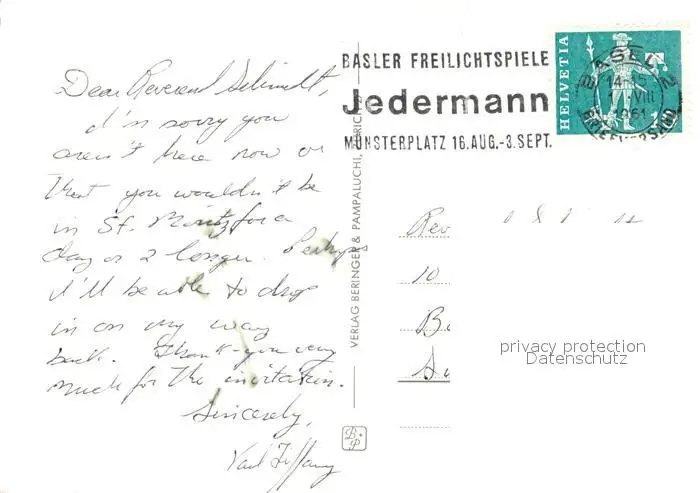 Dear Reverend Schmidt,
I'm sorry you
aren't here now or
that you wouldn't be
in St. Moritz for a
day or 2 longer. Perhaps
I'll be able to drop
in on my way
back. Thank-you very
much for the invitation.
Sincerely,
Tiffany
VERLAG BERINGER & PAMPALUCHI, ZÜRICH
BASLER FREILICHTSPIELE
Jedermann
MÜNSTERPLATZ 16.AUG.-3.SEPT.
HELVETIA
10
BASEL 2
14-15
VIII
1961
BRIEFVERSAND
Rev
10
B
privacy protection
Datenschutz
B.P